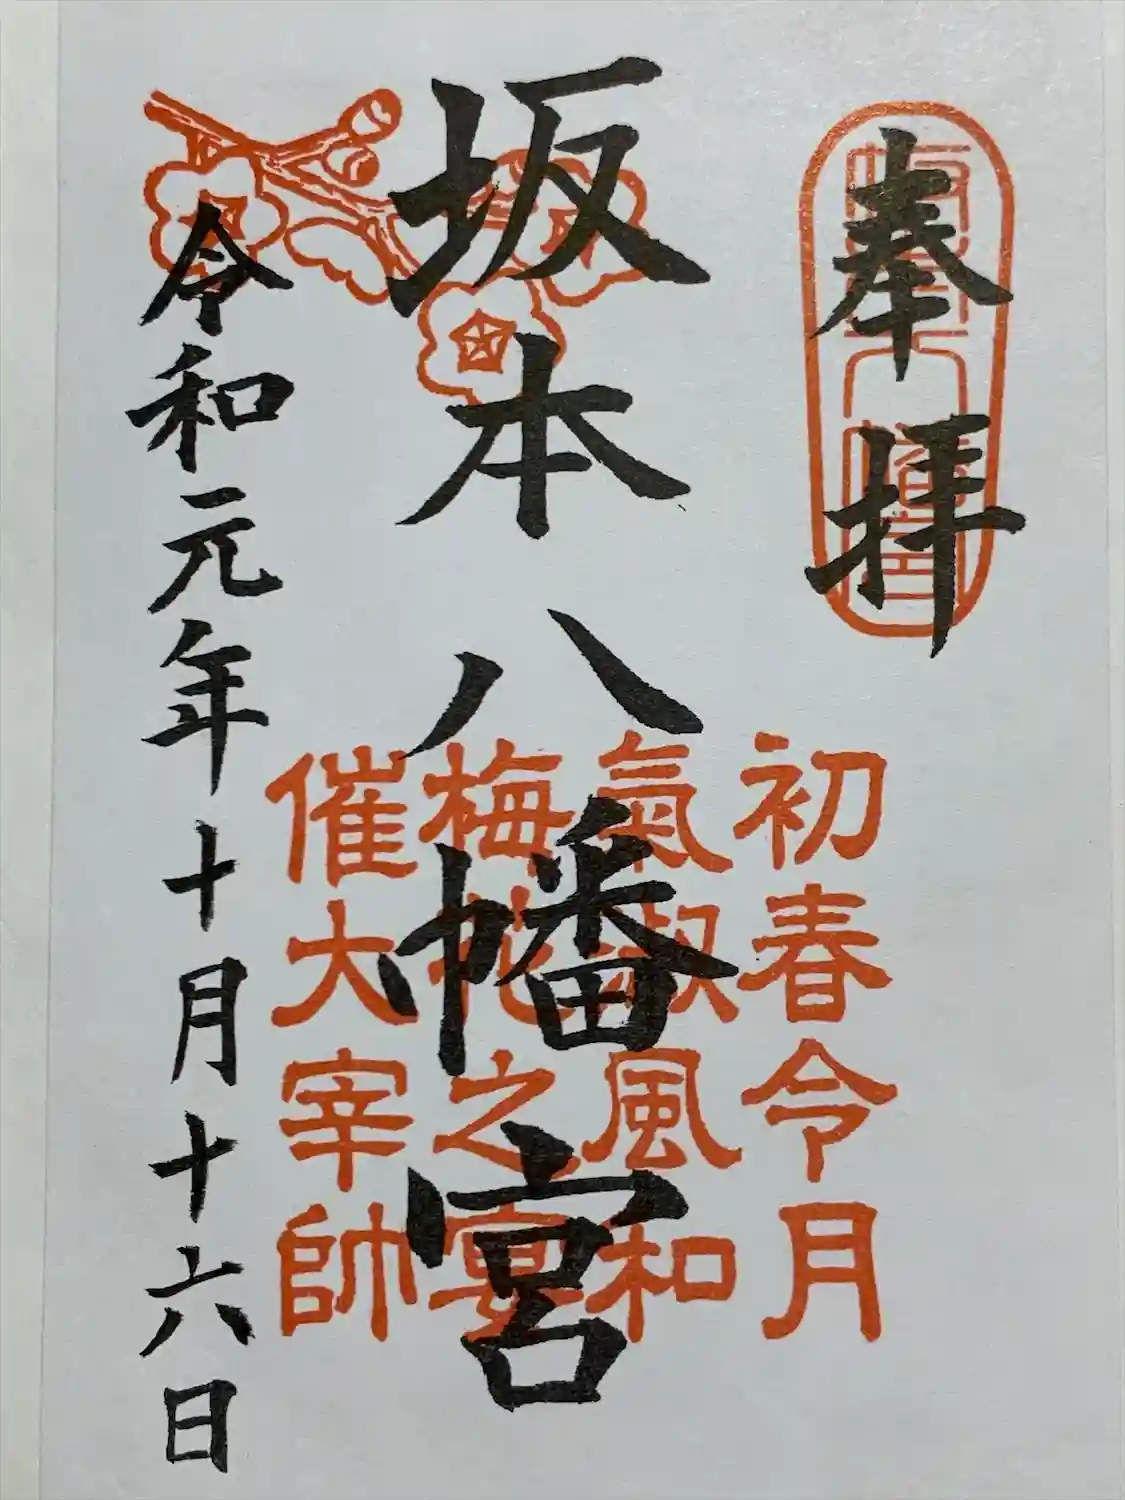 奉拝
坂本八幡宮
初春令月
氣淑風和
梅花之宴
催大宰帥
坂本八幡宮
令和元年十月十六日